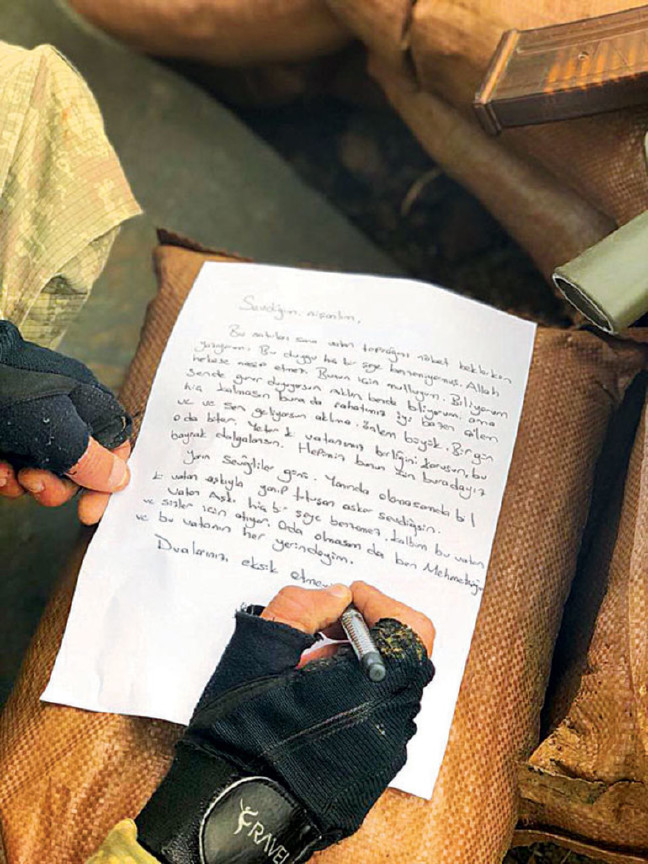 Sevdiğim, nişanlım,
Bu satırları sana vatan toprağını nöbet beklerken
yazıyorum. Bu duygu hiç bir şeye benzemiyormuş. Allah
herkese nasip etmez. Bunun için mutluyum. Biliyorum
sende gurur duyuyorsun aklın bende biliyorum, ama
hiç kalmasın burada rahatımız iyi bazen ailem
ve ve sen geliyorsun aklıma. özlem büyük. Bir gün
o da biter. Yeter ki vatanımız birliğini korusun, bu
bayrak dalgalansın. Hepimiz bunun için buradayız
Yarın sevgililer günü. Yanında olamasamda bil
ki vatan aşkıyla yanıp tutuşan asker sevdiğisin.
Vatan Aşkı hiç bir şeye benzemez. Kalbim bu vatan
ve sizler için atıyor. Orda olmasam da ben Mehmetçiğim
ve bu vatanın her yerindeyim.
Dualarınızı eksik etmeyin
RAVEL